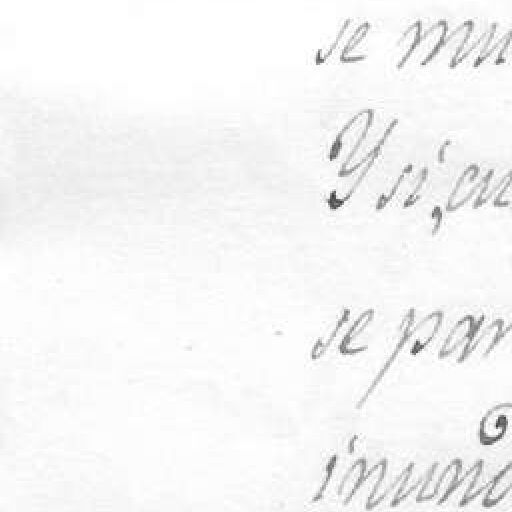 se mu
Y si, cu
se par
inund